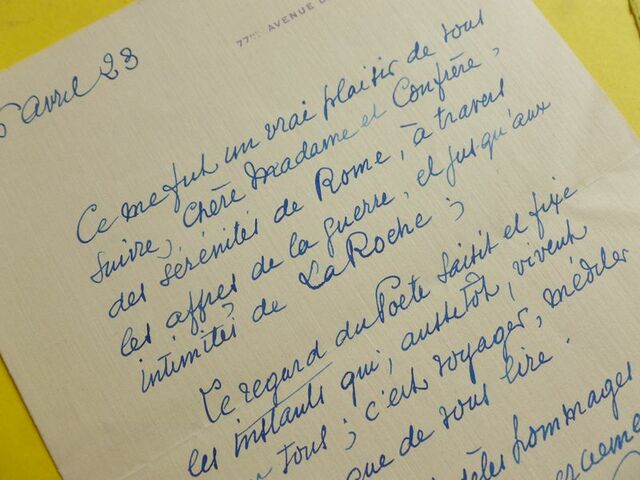 77bis AVENUE D
avril 23
Ce me fut un vrai plaisir de vous
suivre, Chère Madame et Confrère,
des sérénités de Rome, à travers
les affres de la guerre, et jusqu'aux
intimités de La Roche ;
Le regard du Poète saisit et fixe
les instants qui, aussitôt, vivent
tous ; c'est voyager, méditer
que de vous lire.
hommages